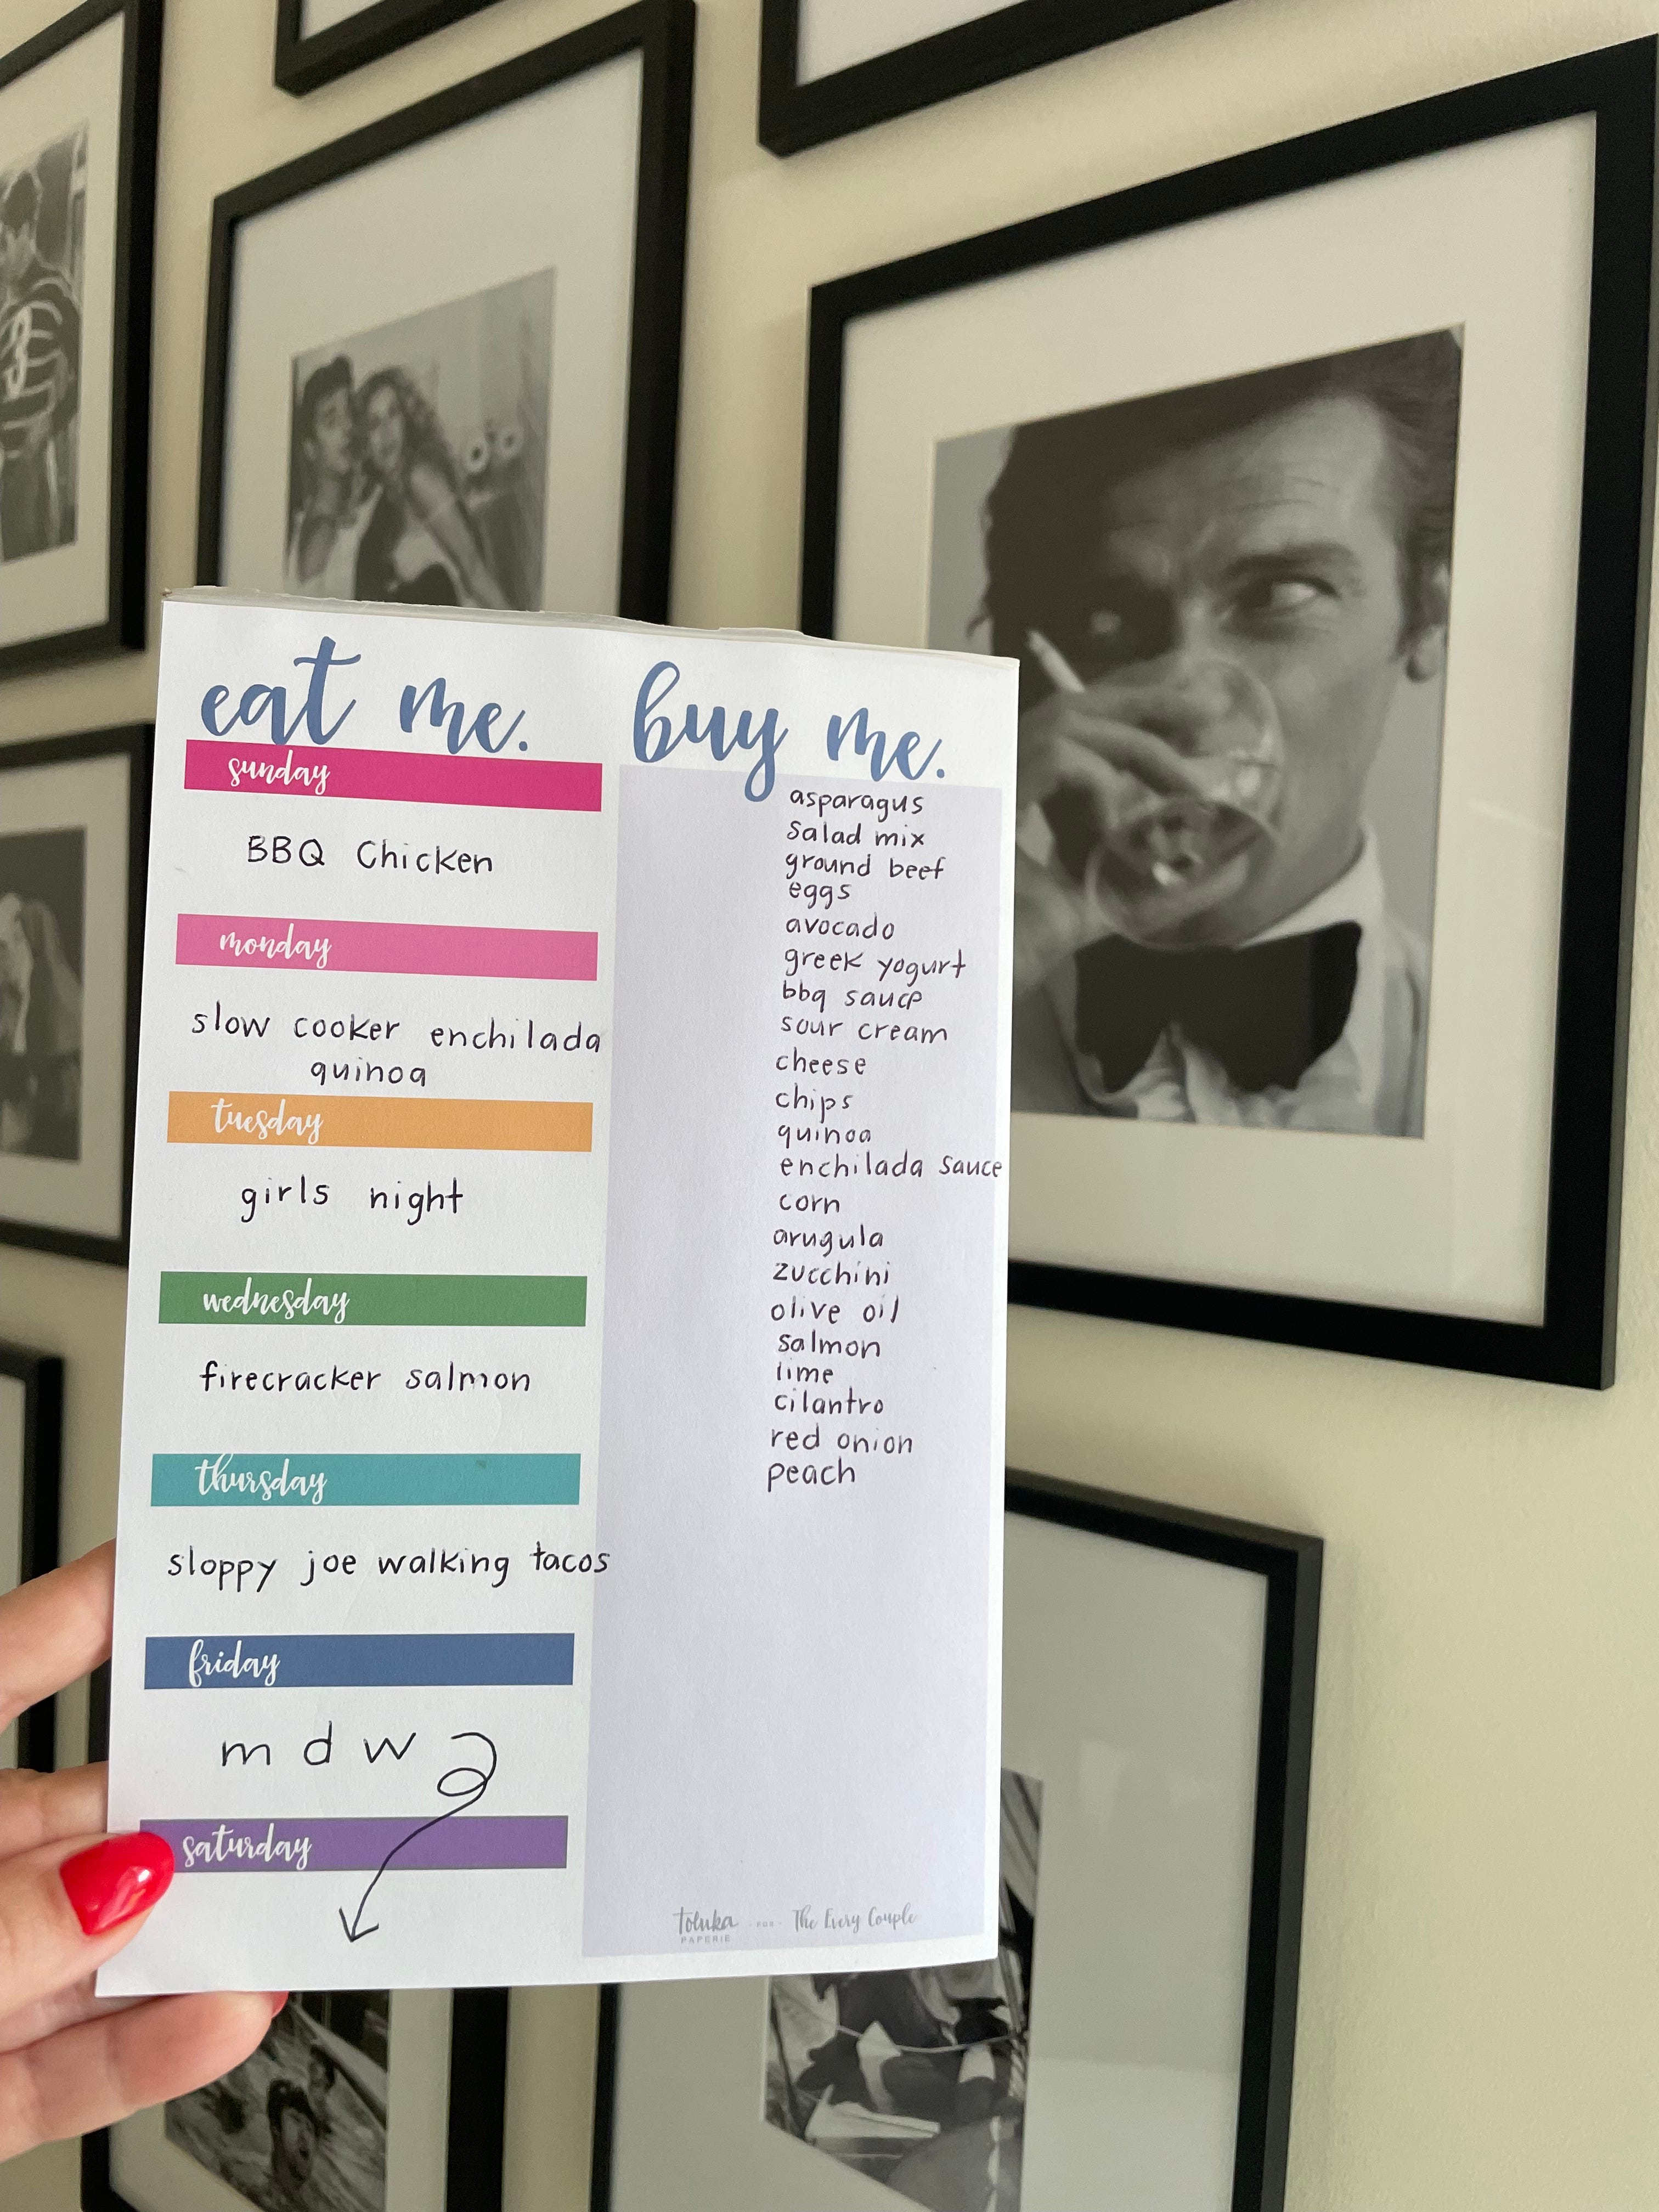 eat me.
sunday
BBQ Chicken
monday
slow cooker enchilada
quinoa
tuesday
girls night
wednesday
firecracker salmon
thursday
sloppy joe walking tacos
friday
m d w
saturday
buy me.
asparagus
salad mix
ground beef
eggs
avocado
greek yogurt
bbq sauce
sour cream
cheese
chips
quinoa
enchilada sauce
corn
arugula
zucchini
olive oil
salmon
lime
cilantro
red onion
peach
toluka PAPERIE - FOR - The Every Couple